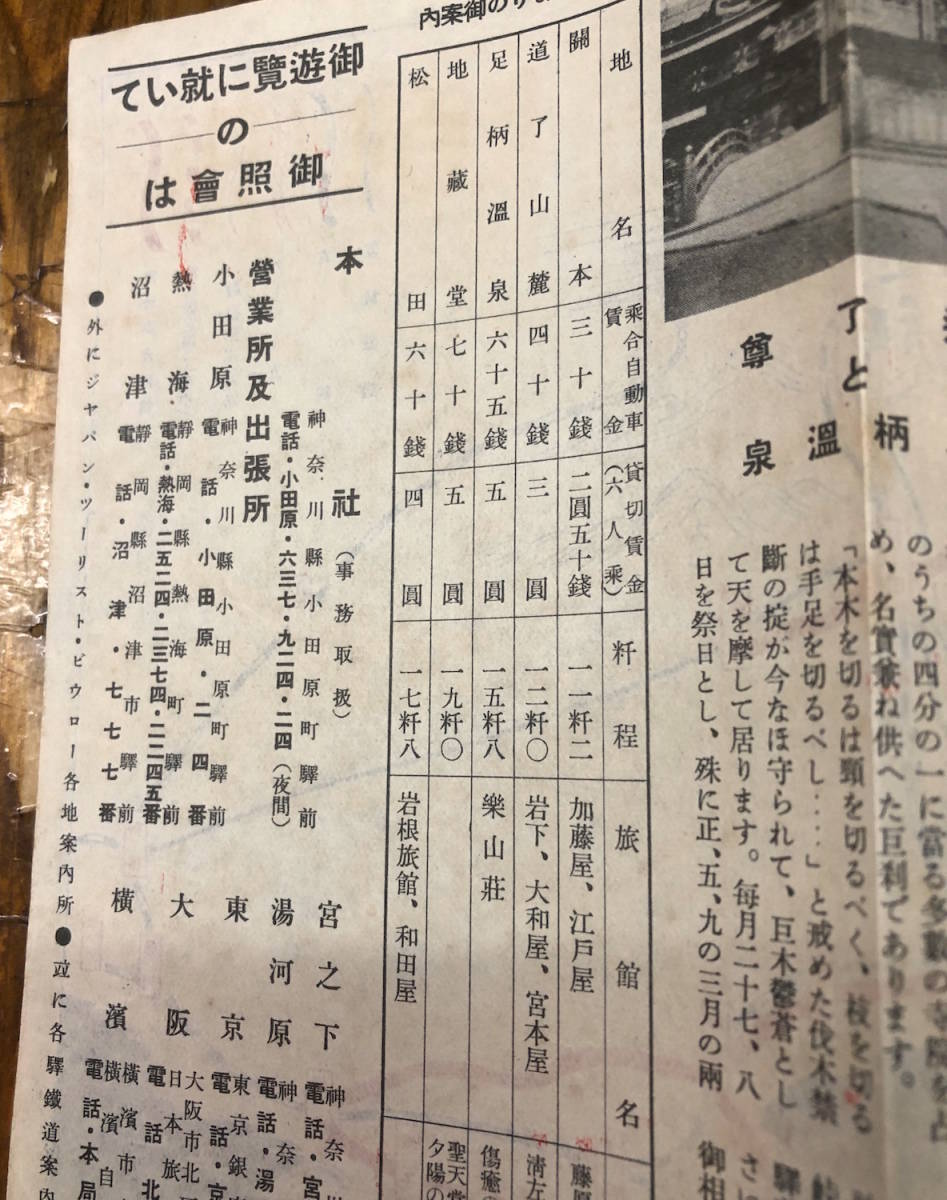 了と
尊
柄
溫
泉
のうちの四分の一に當る多數の
め、名實兼ね供へた巨刹であります。
「本木を切るは頸を切るべく、枝を切る
は手足を切るべし‥‥」と戒めた伐木禁
斷の掟が今なほ守られて、巨木鬱蒼とし
て天を摩して居ります。每月二十七、八
日を祭日とし、殊に正、五、九の三月の兩
りの御案內
地名 乘合自動車賃金 貸切賃金(六人乘) 粁程 旅館名
關本 三十錢 二圓五十錢 一一粁二 加藤屋、江戶屋
道了山麓 四十錢 三圓 一二粁〇 岩下、大和屋、宮本屋
足柄溫泉 六十五錢 五圓 一五粁八 樂山莊
地藏堂 七十錢 五圓 一九粁〇
松田 六十錢 四圓 一七粁八 岩根旅館、和田屋
藤原
淸左
傷癒
聖天堂
夕陽の
御遊覽に就いて
の
御照會は
本社(事務取扱)
神奈川縣小田原町驛前
電話・小田原・六三七・九二四・二四(夜間)
營業所及出張所
小田原 神奈川縣小田原町驛前
電話・小田原・二四番
熱海 靜岡縣熱海町驛前
電話・熱海・二五二四・二三七四・二二四五番
沼津 靜岡縣沼津市驛前
電話・沼津・七七七番
宮之下 神奈
電話・宮
湯河原 神奈
電話・湯
東京 東京銀
電話・京
大阪 大阪市北
日本旅
電話北
橫濱 橫濱市
橫濱自
電話・本局
●外にジヤパン・ツーリスト・ビウロー各地案內所●竝に各驛鐵道案內